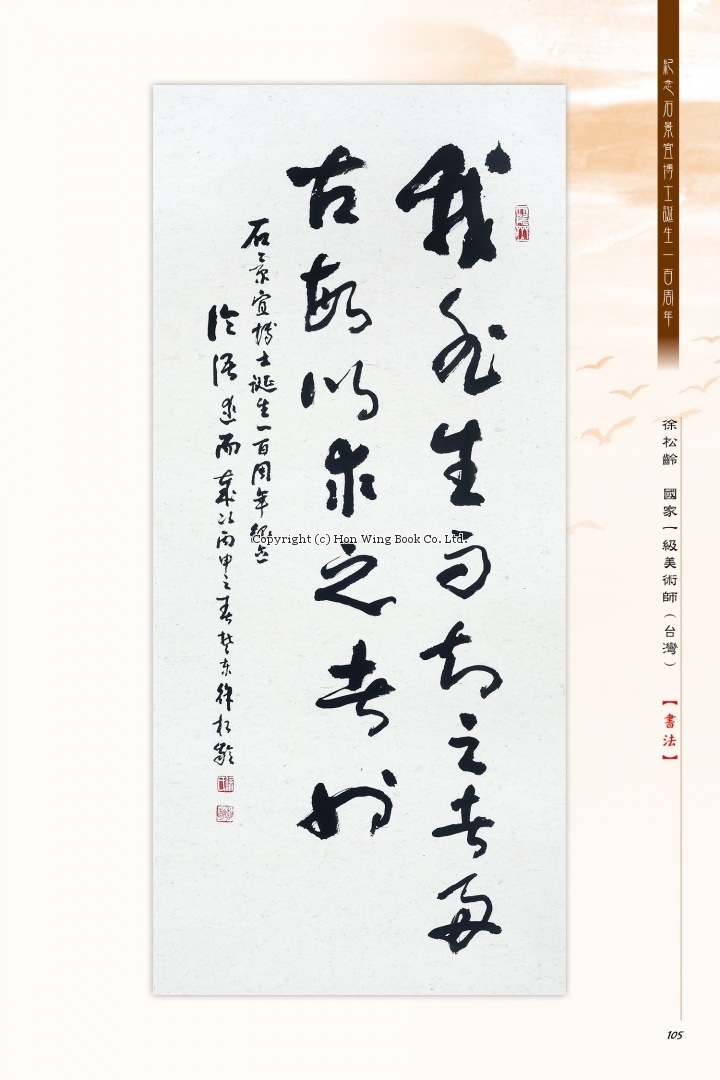 紀念石景宜博士誕生一百周年
徐松齡 國家一級美術師（台灣）【書法】
我非生而知之者好
古敏以求之者也
石景宜博士誕生一百周年紀念
論語述而 丙申之春楚東徐松齡
Copyright (c) Hon Wing Book Co. Ltd.
105